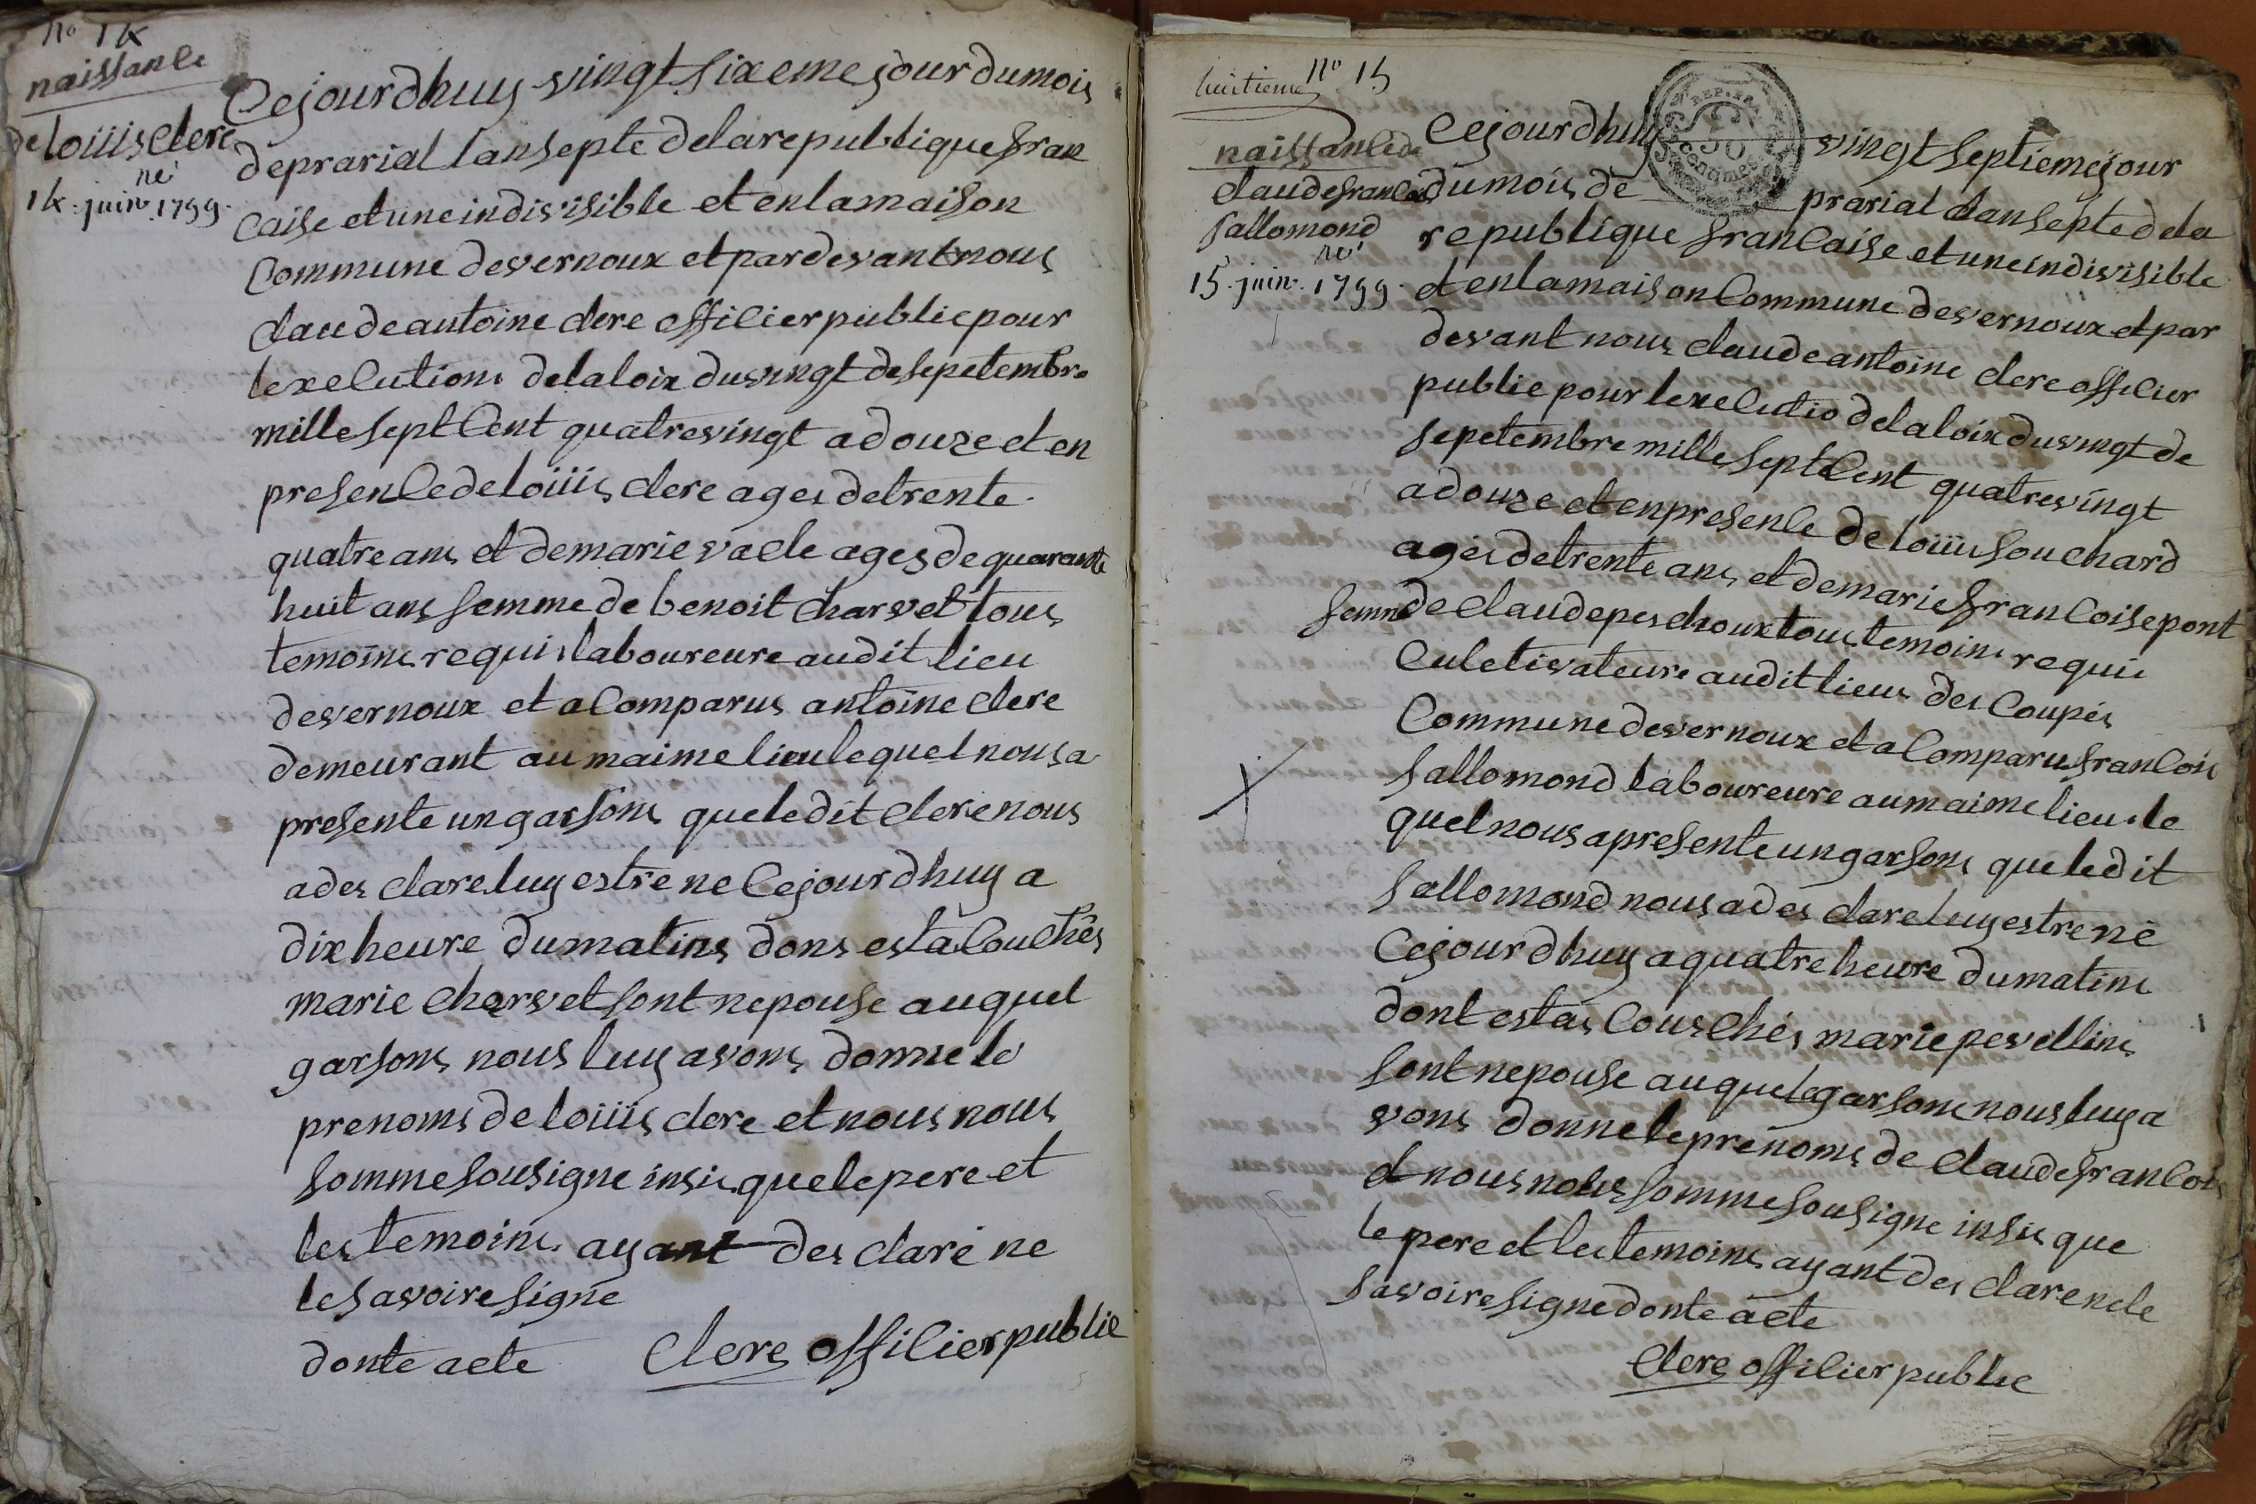 no 14
naissanle
de loüiis clerc
né
14. juin. 1799.
Cejourdhuy vingt sixeme jour du mois
de prarial lan septe de la republique fran
caise et une indivisible et en la maison
Commune de vernoux et par devant nous
claude antoine clerc offilier public pour
lexelution de la loix du vingt de sepetembre
mille sept Cent quatre vingt a douze et en
presenle de loüiis clerc ages de trente
quatre ans et de marie vacle ages de quarante
huit ans femme de benoit Charvet tous
temoins requis laboureure audit lieu
de vernoux et a Comparus antoine clerc
demeurant au maime lieu lequel nous a
presente un garsons que ledit clerc nous
a des clare luy estre ne Cejourdhuy a
dix heure du matins dons est a Couchés
marie Charvet sont nepouse auquel
garsons nous luy avons donne le
prenoms de loüiis clerc et nous nous
somme sousigne insis que le pere et
les temoins ayant des claré ne
le savoire signe
donte acte Clerc offilier public
huitieme no 15
naissanle de
claude franlois
sallomond
né
15. juin. 1799.
Cejourdhuy vingt septieme jour
du mois de prarial lan septe de la
republique franlaise et une indivisible
et en la maison Commune de vernoux et par
devant nous claude antoine clerc offilier
public pour lexelutio de la loix du vingt de
sepetembre mille sept Cent quatre vingt
a douze et en presenle de loüiis souchard
agés de trente ans et de marie franloise pont
femme de claude perchoux tous temoins requis
Culetivateure audit lieu des Coupés
Commune de vernoux et a Comparu franlois
sallomond laboureure au maime lieu le
quel nous a presente un garsons que ledit
sallomond nous a des clare luy estre né
Cejourdhuy a quatre heure du matins
dont est as Couschés marie pevellins
sont nepouse auquel garsons nous luy a
vons donne le prenoms de claude franlois
et nous nous somme sousigne insis que
le pere et les temoins ayant des clare ne le
savoire signe donte acte
Clerc offilier public